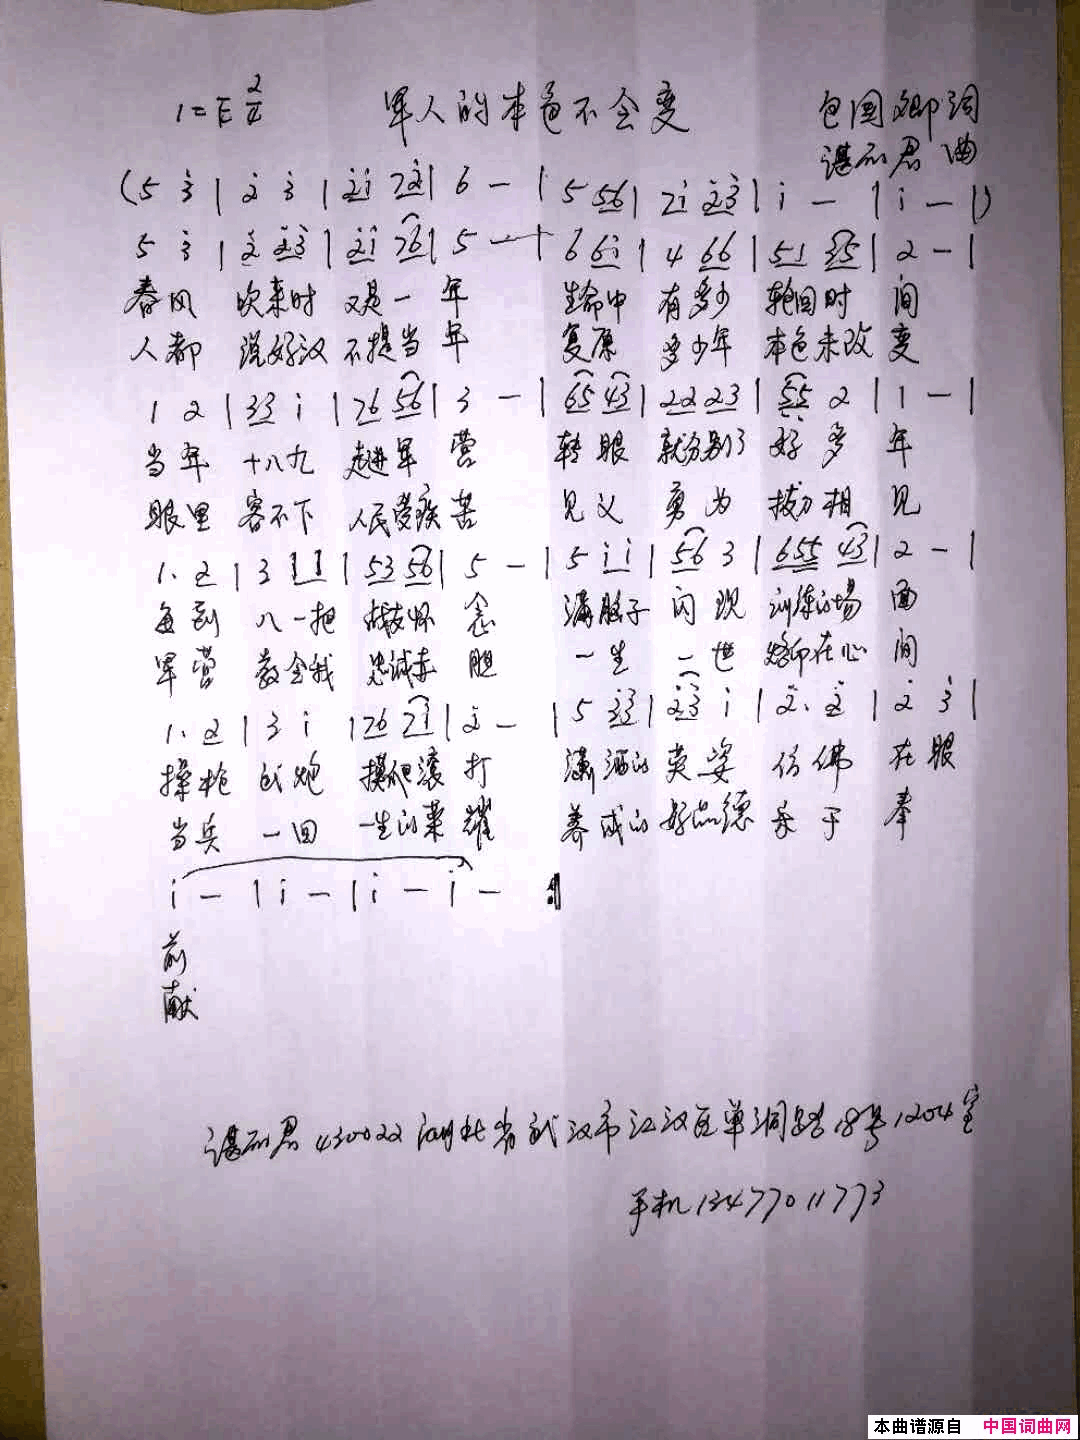 1=E 2/4 军人的本色不会变 包国卿词
谌而君曲
(5 3̇ | 2̇ 3̇ | 2̇1̇ 72̇ | 6 — | 5 56 | 71̇ 2̇3̇ | 1̇ — | 1̇ — |)
5 3̇ | 2̇ 2̇3̇ | 2̇1̇ 76 | 5 — | 6 61̇ | 4 66 | 51 35 | 2 — |
春风 吹来时 又是一 年 生命中 有多少 轮回时 间
人都 说好汉 不提当 年 复原 多少年 本色未改 变
1 2 | 33 1̇ | 76 56 | 3 — | 65 43 | 22 23 | 55 2 | 1 — |
当年 十八九 走进军 营 转眼 就分别了 好多 年
眼里 容不下 人民受疾 苦 见义 勇为 拔刀相 见
1. 2 | 3 1 1 | 53 56 | 5 — | 5 1̇ 1̇ | 56 3 | 655 43 | 2 — |
每到 八一把 战友怀 念 满脑子 闪现 训练的场 面
军营 教会我 忠诚赤 胆 一生 一世 烙印在心 间
1. 2 | 3 1̇ | 76 71̇ | 2̇ — | 5 3̇3̇ | 2̇3̇ 1̇ | 2̇. 2̇ | 2̇ 3̇ |
操枪 试炮 摸爬滚 打 潇洒的 英姿 仿佛 在眼
当兵 一回 一生的荣 耀 养成的 好品德 乐于 奉
1̇ — | 1̇ — | 1̇ — 1̇ — :|
前
献
谌而君 430022 湖北省武汉市江汉区单洞路18号1204室
手机13477011773
本曲谱源自 中国词曲网